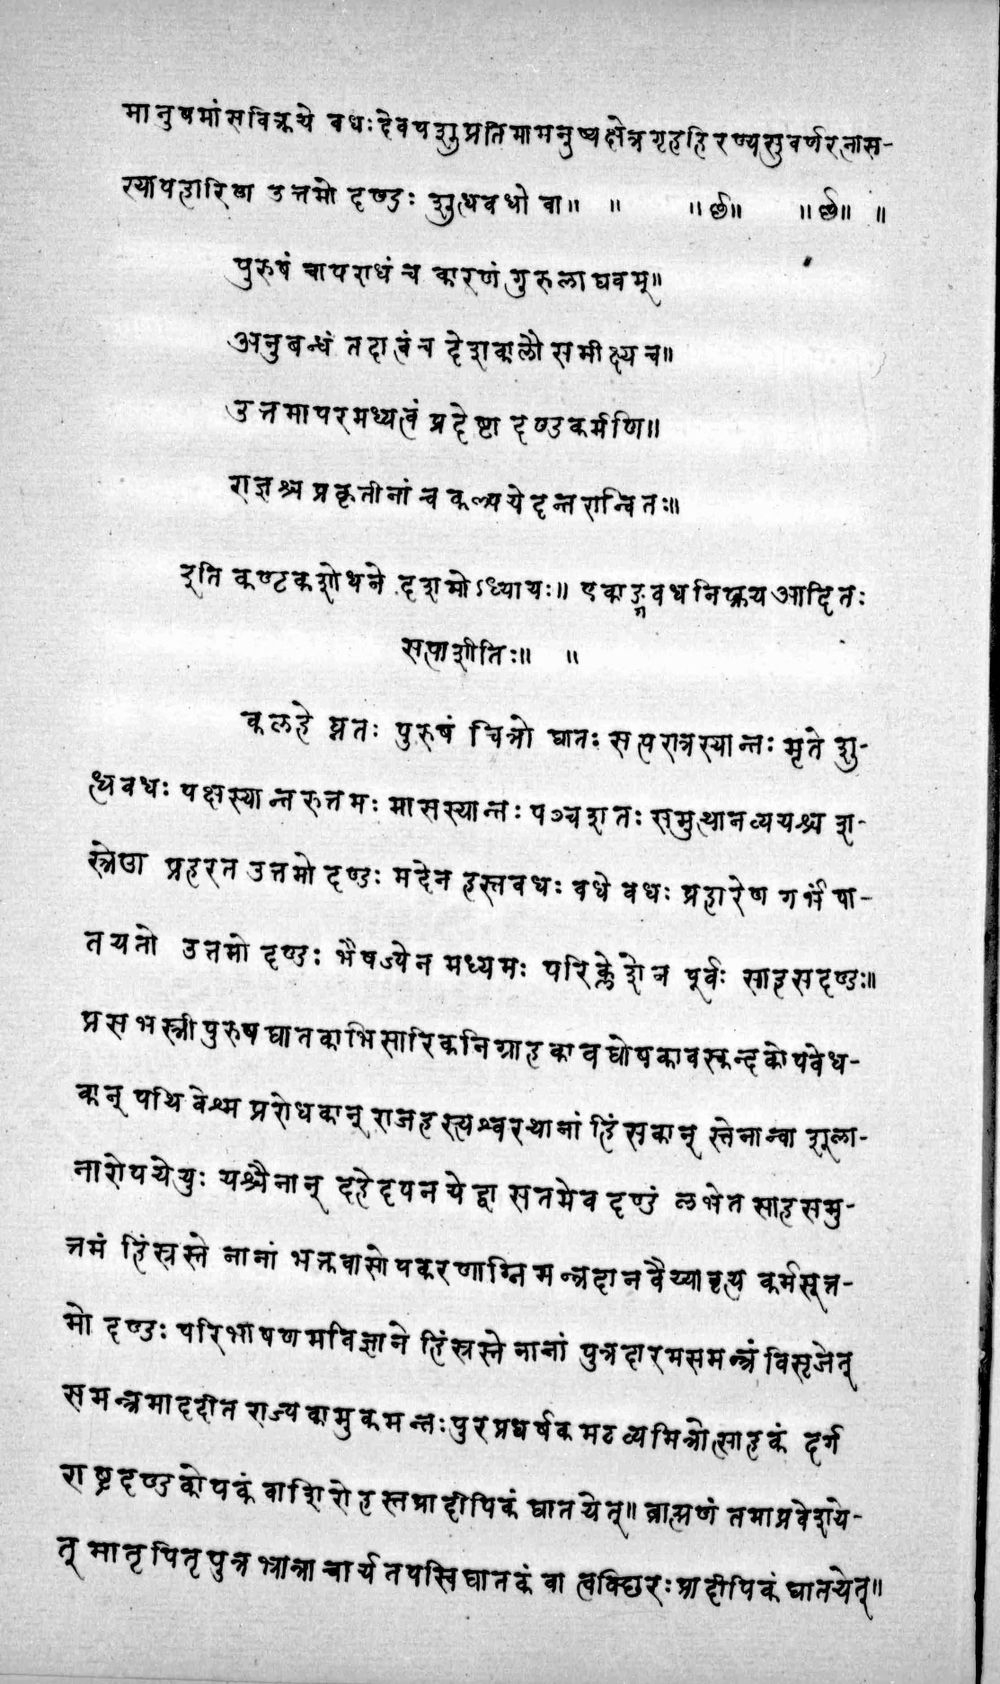 मानुषमांसविक्रये वधः देवपशुप्रतिमामनुष्यक्षेत्रगृहहिरण्यसुवर्णरत्नास-
स्यापहारिण उत्तमो दण्डः शुत्धवधो वा॥ ॥ ॥र्छ॥ ॥र्छ॥ ॥
पुरुषं चापराधं च कारणं गुरुलाघवम्॥
अनुबन्धं तदात्वं च देशकालौ समीक्ष्य च॥
उत्तमापरमध्यत्वं प्रदेष्टा दण्डकर्मणि॥
राज्ञश्च प्रकृतीनां च कल्पयेदन्तरान्वितः॥
इति कण्टकशोधने दशमोऽध्यायः॥ एकाङ्गवधनिष्क्रय आदितः
सप्ताशीतिः॥ ॥
कलहे घ्नतः पुरुषं चित्रो घातः सप्तरात्रस्यान्तः मृते शु-
त्धवधः पक्षस्यान्तरुत्तमः मासस्यान्तः पञ्चशतः समुत्थानव्ययश्च श-
स्त्रेण प्रहरत उत्तमो दण्डः मदेन हस्तवधः वधे वधः प्रहारेण गर्भं पा-
तयतो उत्तमो दण्डः भैषज्येन मध्यमः परिक्लेशेन पूर्वः साहसदण्डः॥
प्रसभस्त्रीपुरुषघातकाभिसारिकनिग्राहकावघोषकावस्कन्दकोपवेध-
कान् पथिवेश्मप्ररोधकान् राजहस्त्यश्वरथानां हिंसकान् स्तेनान्वा शूला-
नारोपयेयुः यश्चैनान् दहेदपनयेद्वा सतमेव दण्डं लभेत साहसमु-
त्तमं हिंस्रस्तेनानां भक्तवासोपकरणाग्निमन्त्रदानवैय्यावृत्य कर्मसूत्त-
मो दण्डः परिभाषणमविज्ञाने हिंस्रस्तेनानां पुत्रदारमसमन्त्रं विसृजेत्
समन्त्रमाददीत राज्यकामुकमन्तःपुरप्रधर्षकमटव्यमित्रोत्साहकं दुर्ग
राष्ट्रदण्डकोपकं वा शिरोहस्तप्रादीपिकं घातयेत्॥ ब्राह्मणं तमाप्रवेशये-
त् मातृपितृपुत्रभ्रात्राचार्यतपस्विघातकं वा त्वक्छिरःप्रादीपिकं घातयेत्॥